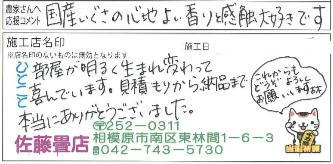 農家さんへ
応援コメント
国産いぐさの心地よい香りと感触大好きです
施工店名印
※店名印のないものは無効となります
施工日
コメント
部屋が明るく生まれ変わって
喜んでいます。見積もりから納品まで
本当にありがとうございました。
これからも
どうぞよろしく
お願いします
〒252-0311
佐藤畳店
相模原市南区東林間1-6-3
042-743-5730